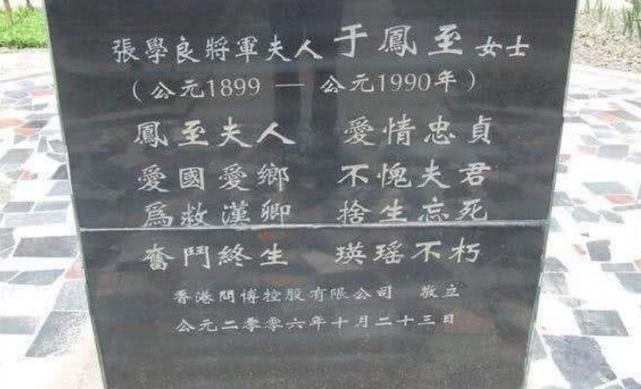 張學良將軍夫人 于鳳至 女士
（公元1899 — 公元1990年）
鳳至夫人 愛情忠貞
愛國愛鄉 不愧夫君
爲救漢卿 捨生忘死
奮鬥終生 瑛瑶不朽
香港問博控股有限公司 敬立
公元二零零六年十月二十三日